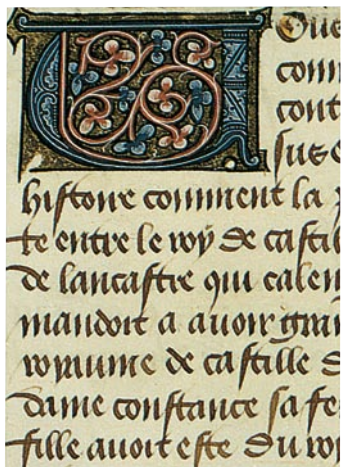 VOus
comm
cont
sus e
histoire comment la
te entre le roy de castil
de lancastre qui calen
mandoit a auoir gran
royaume de castille
dame constance sa fe
fille auoit este du roy